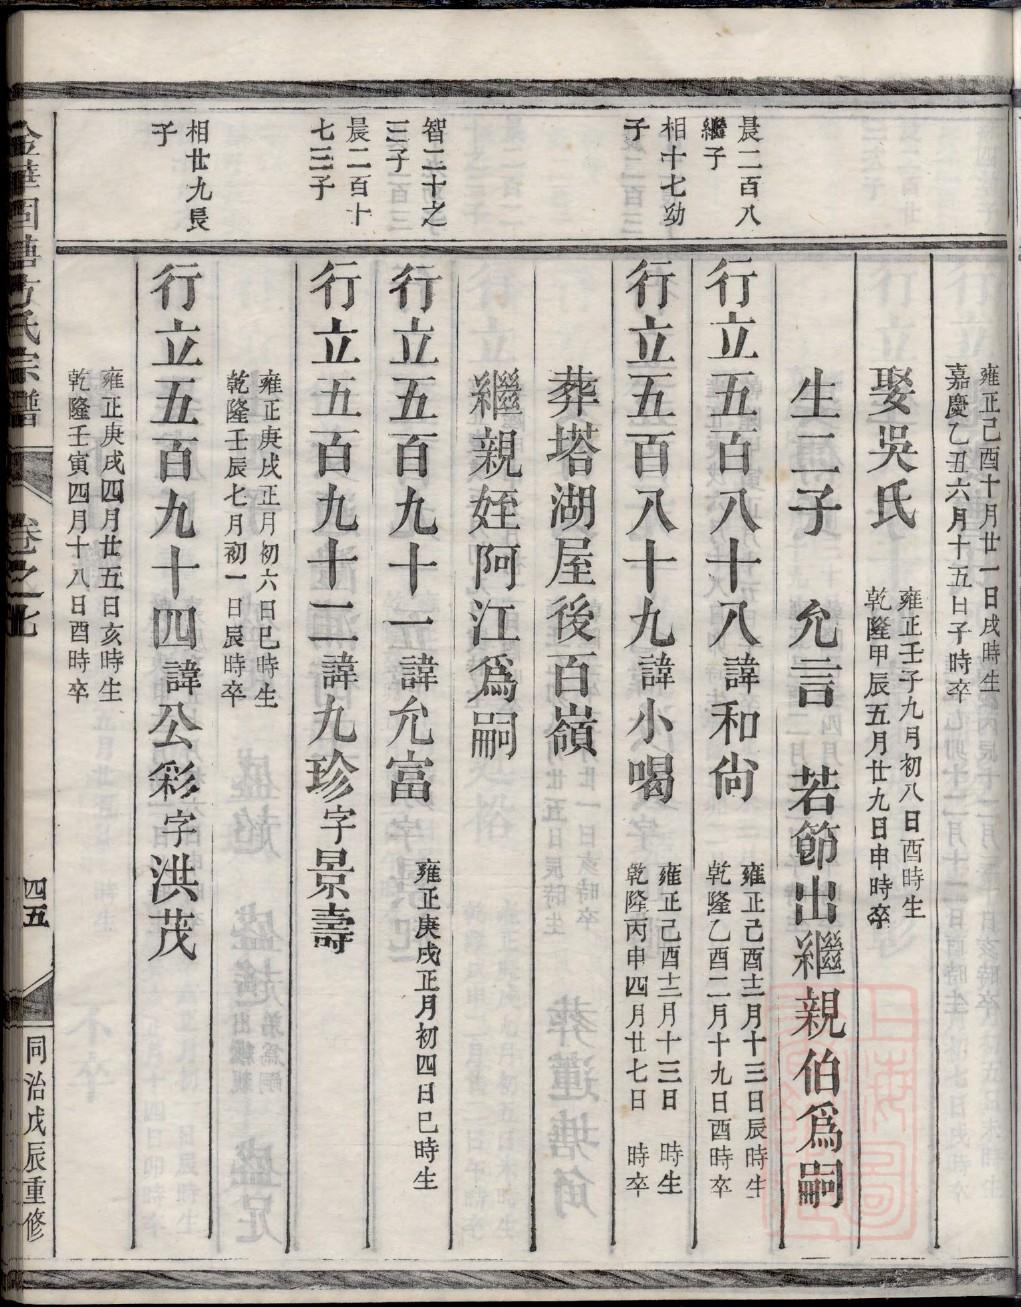 雍正己酉十月廿一日戌時生
嘉慶乙丑六月十五日子時卒
娶吳氏
雍正壬子九月初八日酉時生
乾隆甲辰五月廿九日申時卒
生二子 允言 若節出繼親伯爲嗣
晨二百八
繼子
行立五百八十八諱和尙
雍正己酉十二月十三日辰時生
乾隆乙酉二月十九日酉時卒
相十七幼
子
行立五百八十九諱小喝
雍正己酉十二月十三日 時生
乾隆丙申四月廿七日 時卒
葬塔湖屋後百嶺
繼親姪阿江爲嗣
智二十之
三子
行立五百九十一諱允富
雍正庚戌正月初四日巳時生
晨二百十
七三子
行立五百九十二諱九珍字景壽
雍正庚戌正月初六日巳時生
乾隆壬辰七月初一日辰時卒
相廿九長
子
行立五百九十四諱公彩字洪茂
雍正庚戌四月廿五日亥時生
乾隆壬寅四月十八日酉時卒
金華固塘方氏宗譜 卷之 四五 同治戊辰重修